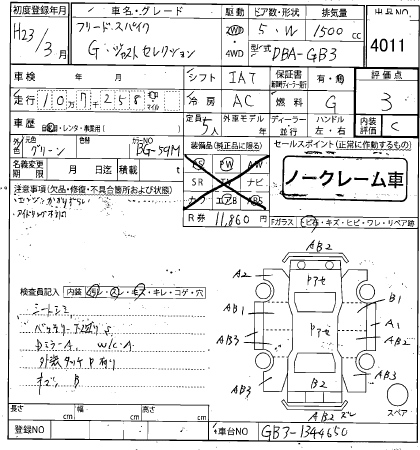 初度登録年月 車名・グレード 駆動 ドア数・形状 排気量 出品NO
H23/3月 フリード・スパイク 2WD 5・W 1500cc 4011
G・ジャストセレクション 4WD 型式 DBA-GB3
車検 年 月 シフト IAT 保証書 有・無 評価点
走行 107258 km マイル 冷房 AC 燃料 G 3
車歴 自家用・レンタ・事業用( ) 定員 5人 外車モデル ディーラー・並行 ハンドル 左・右 内装評価 C
外色 元色 グリーン 色替 カラーNO BG-59M
名義変更期限 月 日迄 積載量 t
装備品(純正品に限る)
PS PW AW
SR ナビ
カワ エアB ABS
R券 11,860円
セールスポイント(正常に作動するもの)
ノークレーム車
注意事項(欠品・修復・不具合箇所および状態)
Fガラス トビ石・キズ・ヒビ・ワレ・リペア跡
検査員記入 内装 ヨゴレ・スレ・キズ・キレ・コゲ・穴
シートシミ
Dミラー A W/C A
外装タッチP有り
キズ B
AB2
A2 Pアセ
AB1 B1
Pアセ A1
AB3 AB2
AB3 B2 AB3
AB2 ズレ
スペア
長さ cm 幅 cm 高さ cm
登録NO 車台NO GB3-1344650